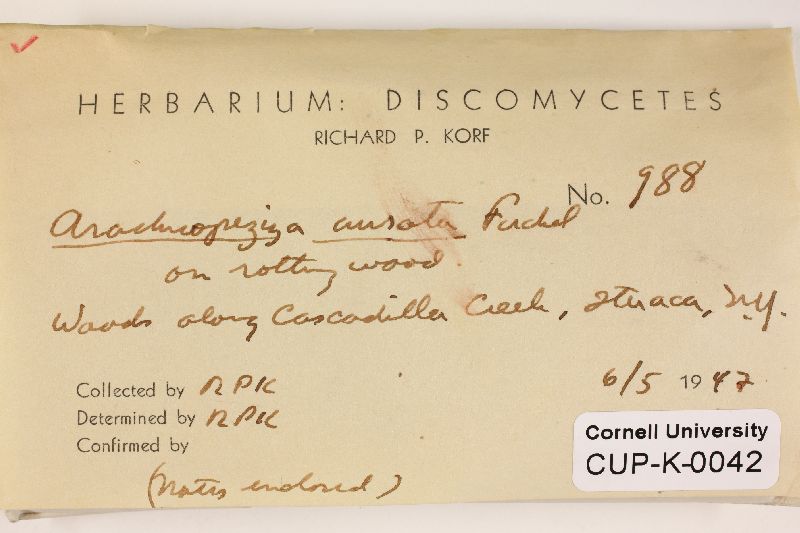 HERBARIUM: DISCOMYCETES
RICHARD P. KORF
No. 988
Arachnopeziza aurata Fuckel
on rotting wood.
Woods along Cascadilla Creek, Ithaca, N.Y.
Collected by RPK 6/5 1947
Determined by RPK
Confirmed by
(notes enclosed)
Cornell University
CUP-K-0042